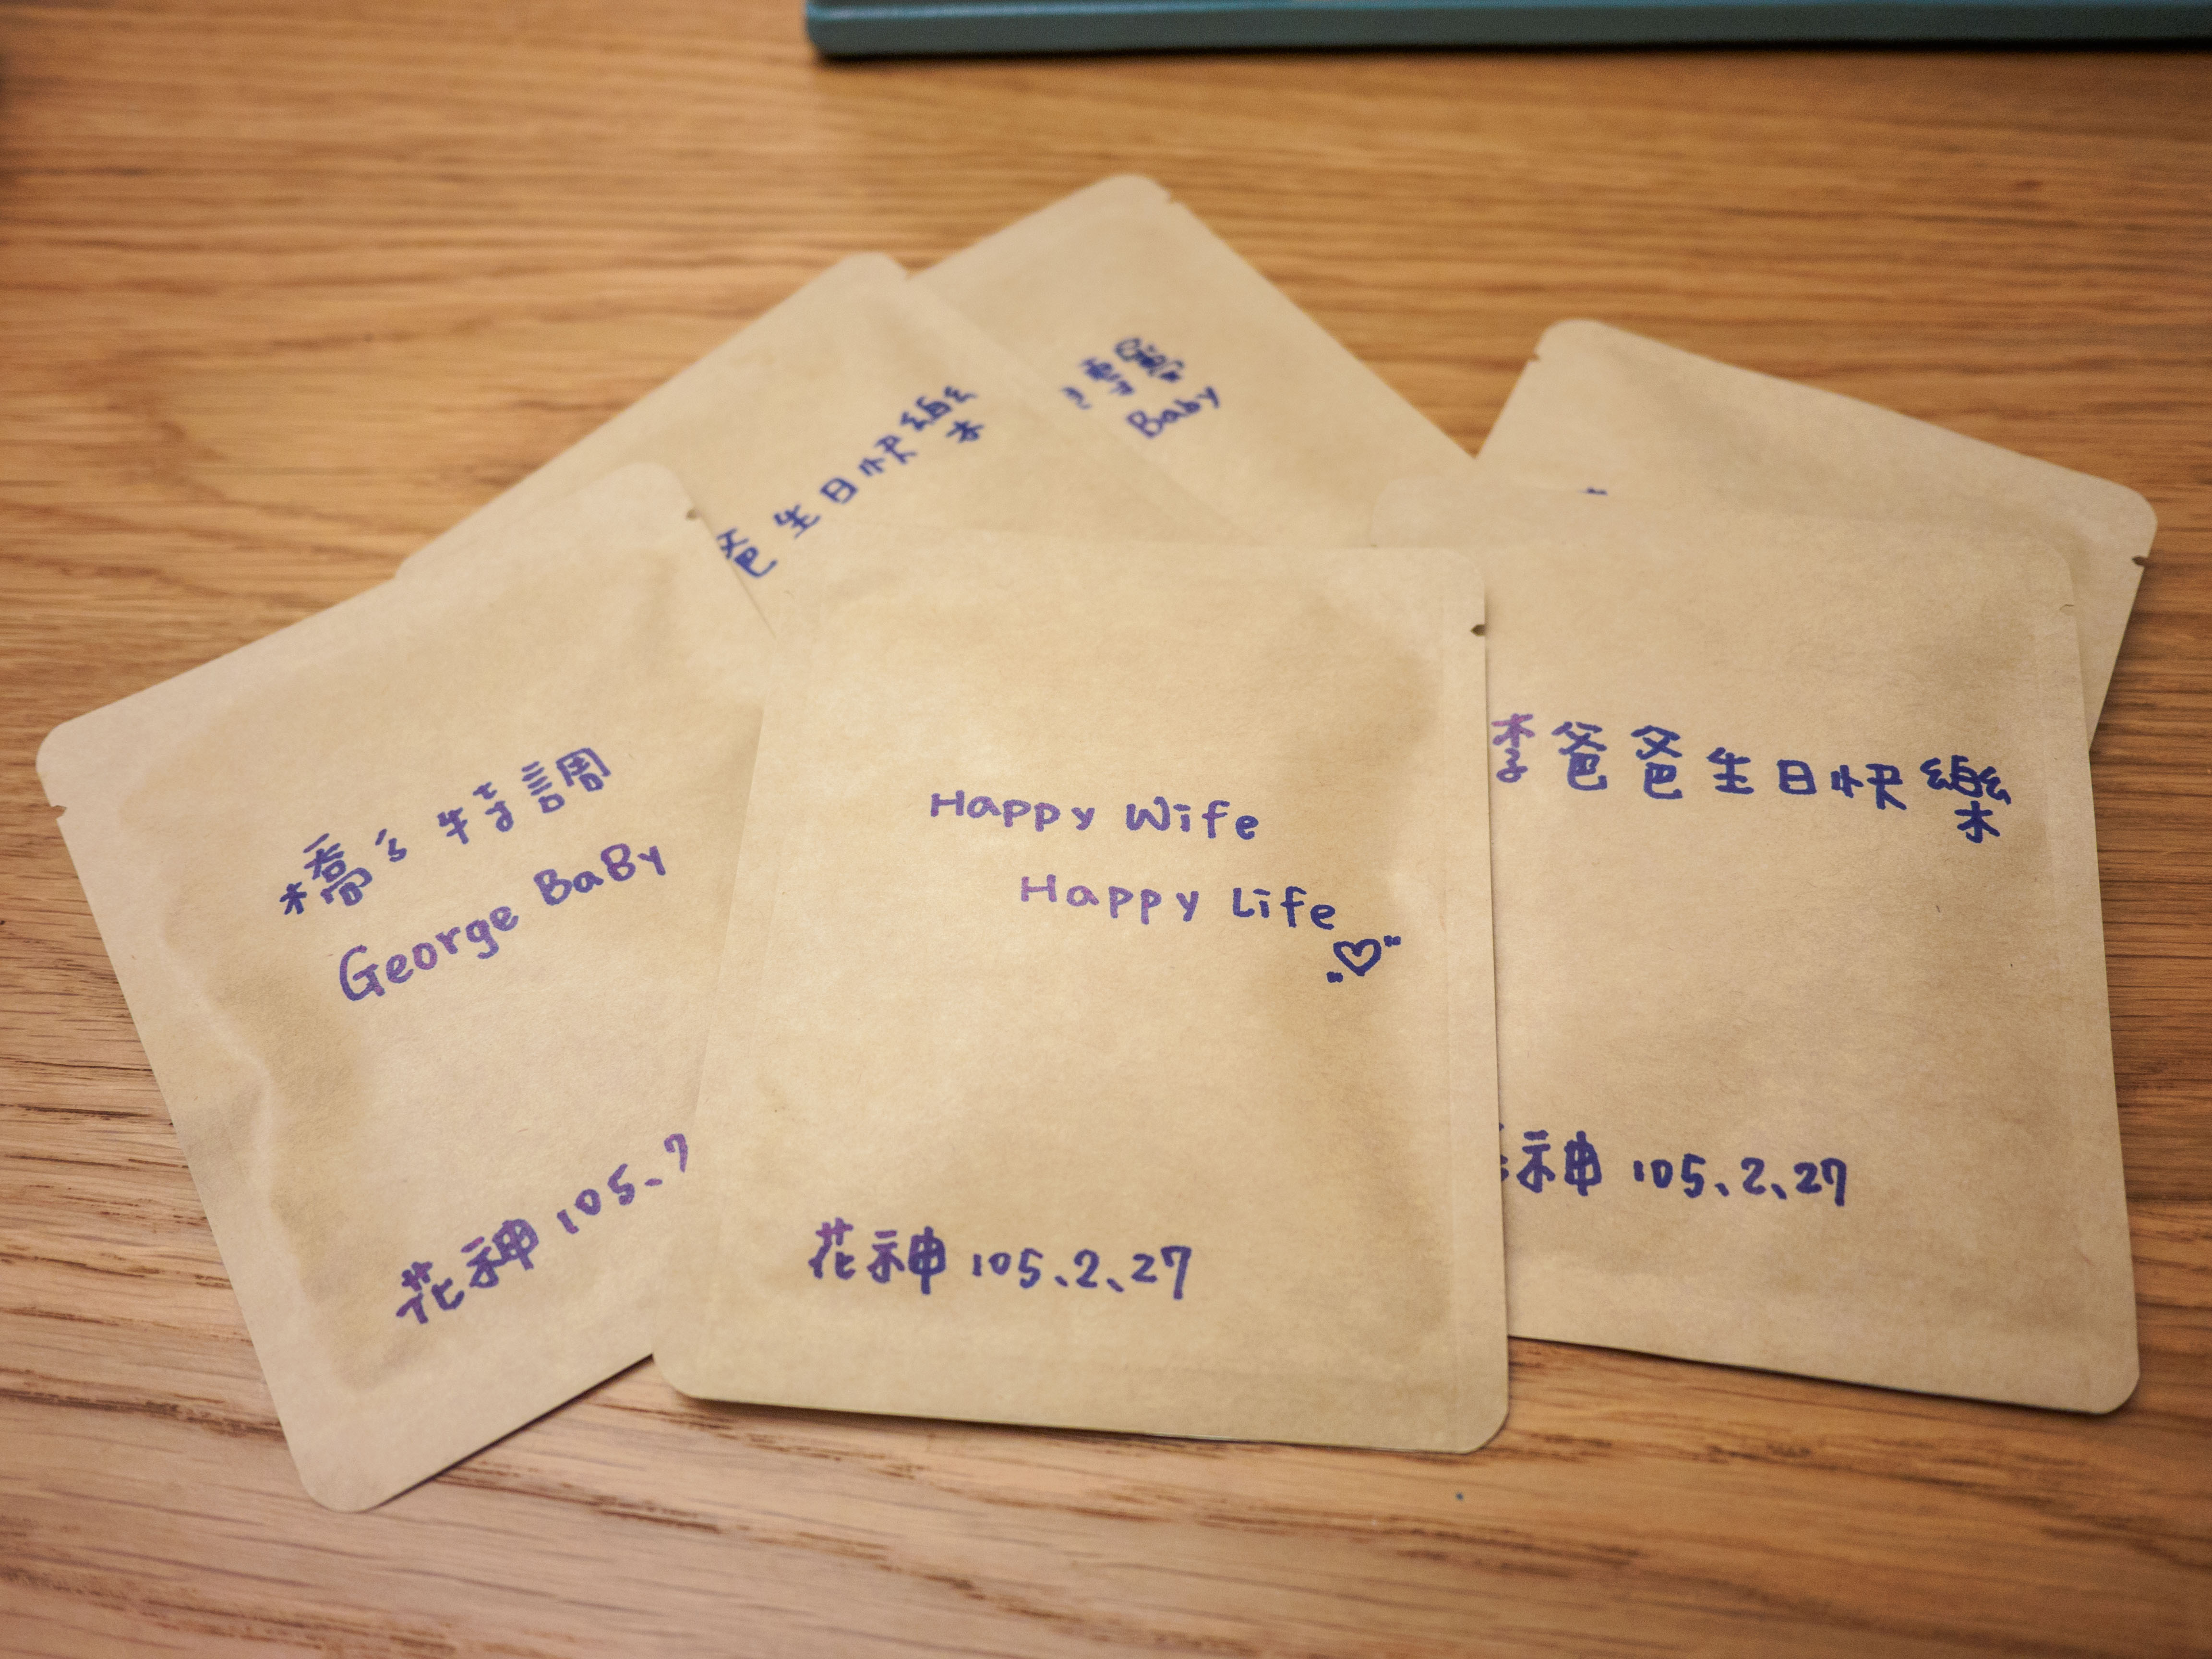 爸生日快樂
Baby
橋ㄋ特調
George BaBy
花神 105、2
Happy Wife
Happy Life
花神 105、2、27
李爸爸生日快樂
神 105、2、27